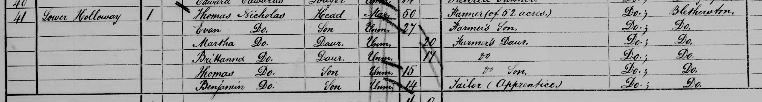 41 Lower Holloway 1 Thomas Nicholas Head Mar. 50 Farmer (of 52 acres) Do.; Bletherston.
Evan Do. Son Unm. 27 Farmer's Son. Do.; Do.
Martha Do. Daur. Unm. 20 Farmer's Daur. Do.; Do.
Brittannia Do. Daur. Unm. 17 Do Do.; Do.
Thomas Do. Son Unm. 15 Do Son. Do.; Do.
Benjamin Do. Son Unm. 14 Tailor (Apprentice) Do.; Do.